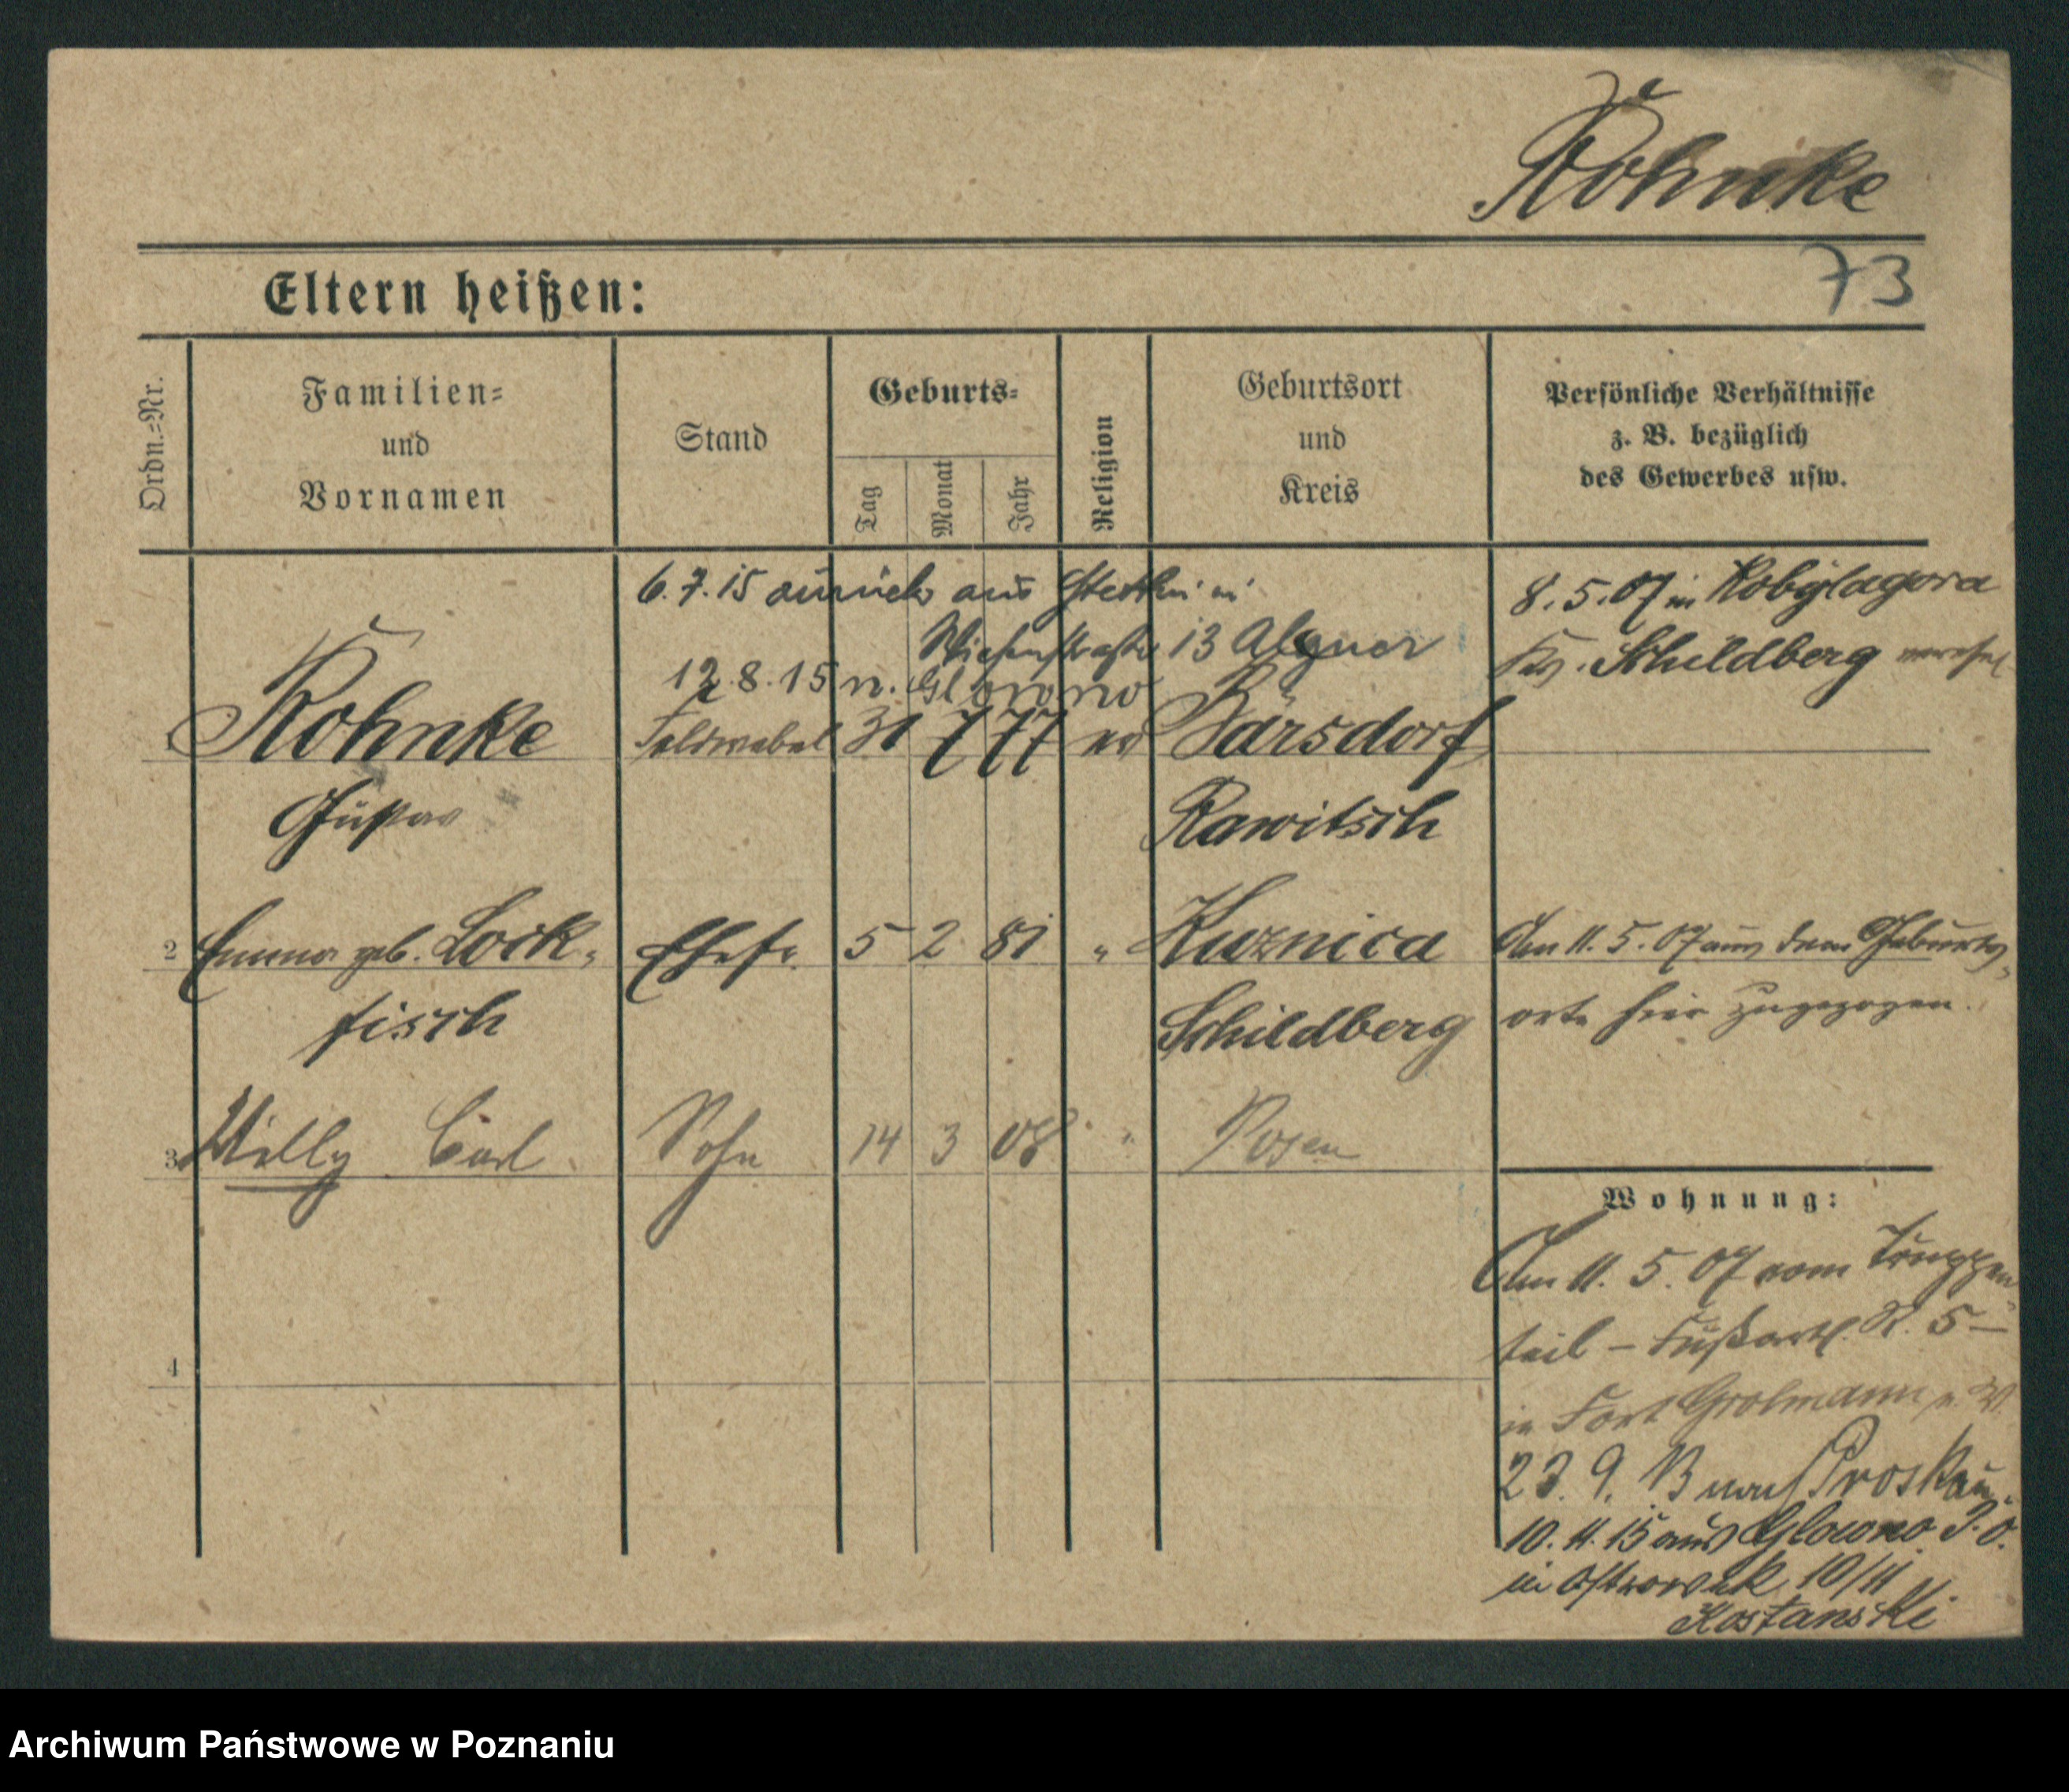 Kohnke
73
Eltern heißen:
Ordn.-Nr.
Familien-
und
Vornamen
Stand
Geburts-
Tag
Monat
Jahr
Religion
Geburtsort
und
Kreis
Persönliche Verhältnisse
z. B. bezüglich
des Gewerbes usw.
6.7.15 zurück aus Stettin in
Wiesenstraße 13
12.8.15 n. Glowno
8.5.07 in Kobylagora
Kr. Schildberg
1 Kohnke Feldwebel 31 7 77 ev Bärsdorf
Gustav Rawitsch
2 Emma geb. Lock- Ehefr. 5 2 81 " Kuznica Am 11.5.07 aus dem Geburts-
fisch Schildberg orte hier zugezogen.
3 Willy Carl Sohn 14 3 08 " Posen
4
Wohnung:
Am 11.5.07 vom Truppen-
teil – Fußartl. R. 5 –
in Fort Grolmann
23.9.13 nach Proskau
10.11.15 aus Glowno P.O.
in 10/11
Kostanski
Archiwum Państwowe w Poznaniu